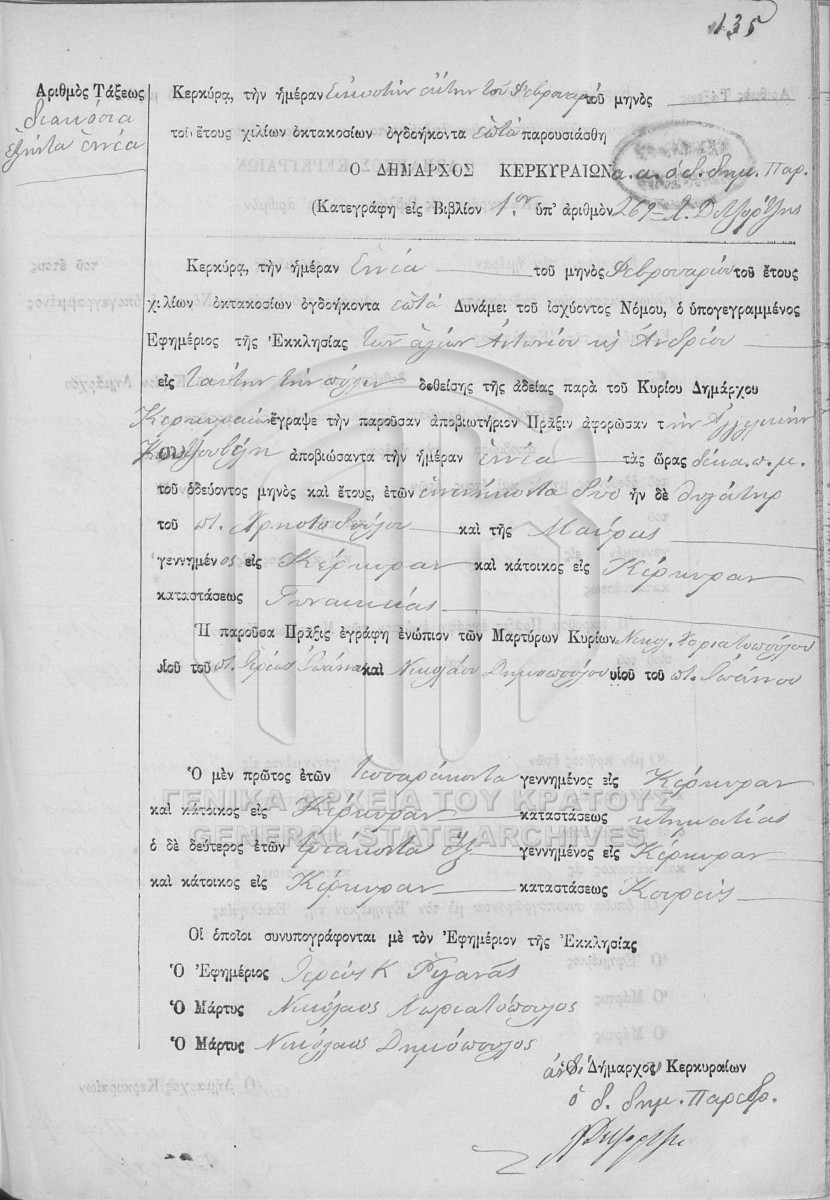 135
Ἀριθμὸς Τάξεως
διακόσια
ἑξήντα ἐννέα
Κερκύρᾳ, τὴν ἡμέραν Εἰκοστὴν ἕκτην τοῦ Φεβρουαρ τοῦ μηνὸς
τοῦ ἔτους χιλίων ὀκτακοσίων ὀγδοήκοντα ἑπτὰ παρουσιάσθη
Ὁ ΔΗΜΑΡΧΟΣ ΚΕΡΚΥΡΑΙΩΝ α. α. ὁ δ. δημ. Παρ.
(Κατεγράφη εἰς Βιβλίον 1ον ὑπ' ἀριθμὸν 269
Κερκύρᾳ, τὴν ἡμέραν ἐννέα τοῦ μηνὸς Φεβρουαρίου τοῦ ἔτους
χιλίων ὀκτακοσίων ὀγδοήκοντα ἑπτὰ Δυνάμει τοῦ ἰσχύοντος Νόμου, ὁ ὑπογεγραμμένος
Ἐφημέριος τῆς Ἐκκλησίας τῶν ἁγίων Ἀντωνίου κὶ Ἀνδρέου
εἰς ταύτην τὴν πόλιν δοθείσης τῆς ἀδείας παρὰ τοῦ Κυρίου Δημάρχου
Κερκυραίων ἔγραψε τὴν παροῦσαν ἀποβιωτήριον Πρᾶξιν ἀφορῶσαν τὴν
ἀποβιώσαντα τὴν ἡμέραν ἐννέα τὰς ὥρας δέκα π. μ.
τοῦ ὁδεύοντος μηνὸς καὶ ἔτους, ἐτῶν ἐνενήκοντα δύο ἦν δὲ θυγάτηρ
τοῦ πτ. Χρηστοδούλου καὶ τῆς Μαύρας
γεννημένος εἰς Κέρκυραν καὶ κάτοικος εἰς Κέρκυραν
καταστάσεως
Ἡ παροῦσα Πρᾶξις ἐγράφη ἐνώπιον τῶν Μαρτύρων Κυρίων Νικολ. Χωριατοπούλου
υἱοῦ τοῦ πτ. Ἱερέως Ἰωάνν καὶ Νικολάου Δημοπούλου υἱοῦ τοῦ πτ. Ἰωάννου
Ὁ μὲν πρῶτος ἐτῶν τεσσαράκοντα γεννημένος εἰς Κέρκυραν
ΓΕΝΙΚΑ ΑΡΧΕΙΑ ΤΟΥ ΚΡΑΤΟΥΣ
καὶ κάτοικος εἰς Κέρκυραν καταστάσεως κτηματίας
GENERAL STATE ARCHIVES
ὁ δὲ δεύτερος ἐτῶν τριάκοντα ἓξ γεννημένος εἰς Κέρκυραν
καὶ κάτοικος εἰς Κέρκυραν καταστάσεως Κουρεὺς
Οἱ ὁποῖοι συνυπογράφονται μὲ τὸν Ἐφημέριον τῆς Ἐκκλησίας
Ὁ Ἐφημέριος Ἱερεὺς Κ
Ὁ Μάρτυς Νικόλαος Χωριατόπουλος
Ὁ Μάρτυς Νικόλαος Δημόπουλος
Ὁ Δήμαρχος Κερκυραίων
ὁ δ. δημ. Παρεδρ.